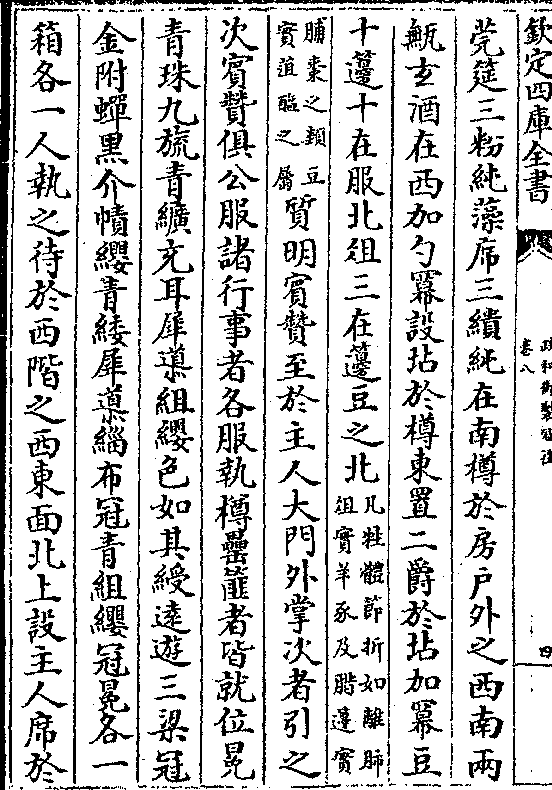 欽定四庫全書
卷八
四
莞筵三粉純藻席三繢純在南樽於房戶外之西南兩
甒玄酒在西加勺冪設坫於樽東置二爵於坫加冪豆
十籩十在服北俎三在籩豆之北凡牲體節折如離肺
俎實羊豕及腊籩實
脯棗之類豆
實菹醢之屬質明賓贊至於主人大門外掌次者引之
次賓贊俱公服諸行事者各服執樽罍篚者皆就位冕
青珠九旒青纊充耳犀簪組纓色如其綬遠遊三梁冠
金附蟬黑介幘纓青緌犀簪緇布冠青組纓冠冕各一
箱各一人執之待於西階之西東面北上設主人席於